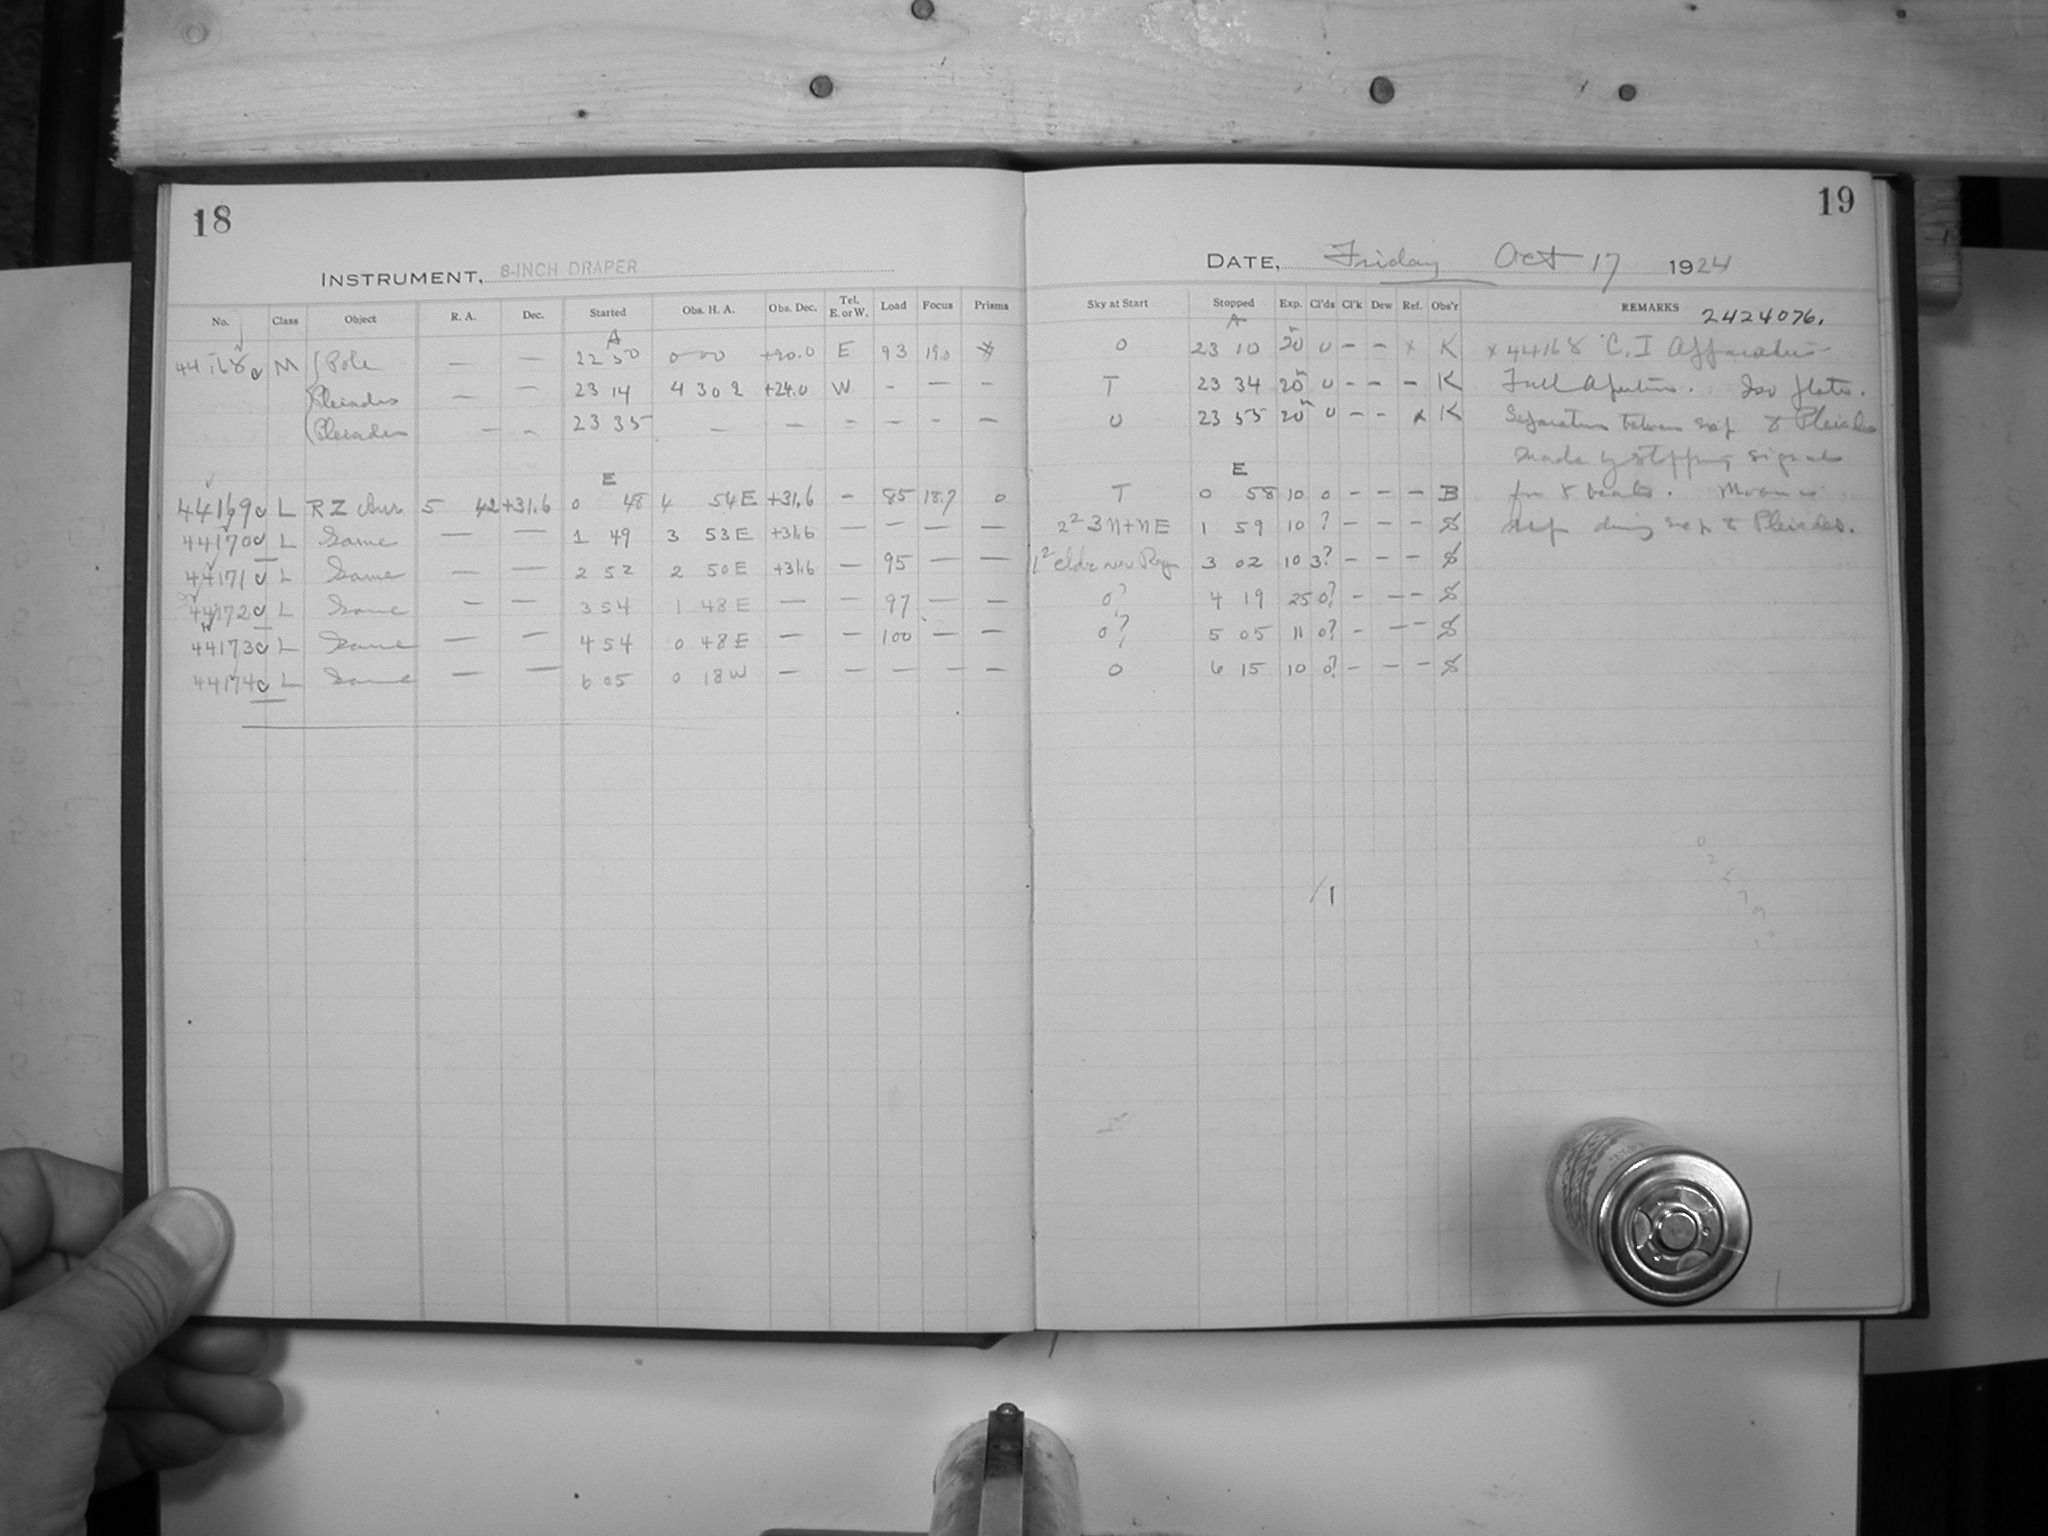 18
INSTRUMENT, 8-INCH DRAPER
No. Class Object R. A. Dec. Started Obs. H. A. Obs. Dec. Tel. E. or W. Load Focus Prisms
A
44168 M Pole — — 22 50 0 00 +90.0 E 93 19.0
Pleiades — — 23 14 4 30 2 +24.0 W - — —
Pleiades — — 23 35 — — — — — —
E
44169 L RZ Aur 5 42 +31.6 0 48 4 54 E +31.6 — 85 18.7 0
44170 L Same — — 1 49 3 53 E +31.6 — — — —
44171 L Same — — 2 52 2 50 E +31.6 — 95 — —
44172 L Same — — 3 54 1 48 E — — 97 — —
44173 L Same — — 4 54 0 48 E — — 100 — —
44174 L Same — — 6 05 0 18 W — — — — —
19
DATE, Friday Oct 17 1924
Sky at Start Stopped Exp. Cl'ds Cl'k Dew Ref. Obs'r REMARKS 2424076.
A
0 23 10 20 0 — — x K x 44168 C. I Apparatus
T 23 34 20 0 — — — K Full Aperture. Iso plate.
0 23 55 20 0 — — x K Separation between exp of Pleiades
made by stopping signals
E
T 0 58 10 0 — — — B for 8 beats. Moon
2² 3 N+NE 1 59 10 ? — — — S up during exp of Pleiades.
1² near 3 02 10 3? — — — S
0? 4 19 25 0? — — — S
0? 5 05 11 0? — — — S
0 6 15 10 0? — — — S